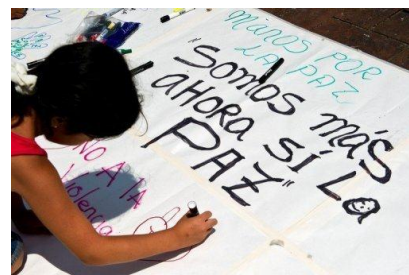 Manos POR
LA PAZ
"SOMOS MÁS
AHORA SÍ La
PAZ"
NO A lA
Violencia